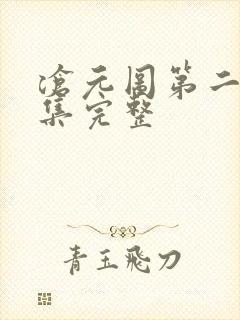 滄元图第二
集完整
青玉飛刀